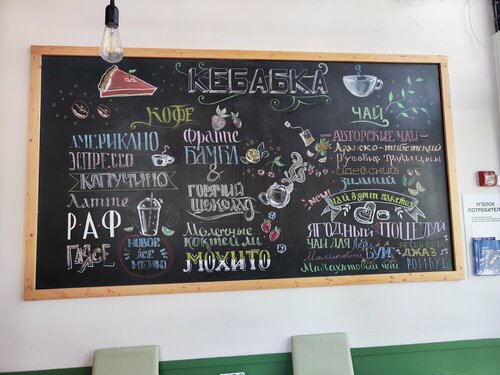 КЕБАБКА
КОФЕ
АМЕРИКАНО
ЭСПРЕССО
КАПУЧИНО
Латте
РАФ
ГЛЯСЕ
НОВОЕ
ICE
МЕНЮ
Фраппе
БАМБЛ
&
ГОРЯЧИЙ
ШОКОЛАД
Молочные
коктейли
МОХИТО
ЧАЙ
АВТОРСКИЕ ЧАИ
Русские традиции
Индийский
ЗИМНИЙ
New
ЧАЙ В ДРИП ПАКЕТАХ
ЯГОДНЫЙ ПОЦЕЛУЙ
ЧАЙ ДЛЯ
БУЙ
ЯГОДНЫЙ
ДЖАЗ
РОЙБУШ
чай
УГОЛОК
ПОТРЕБИТЕЛЯ